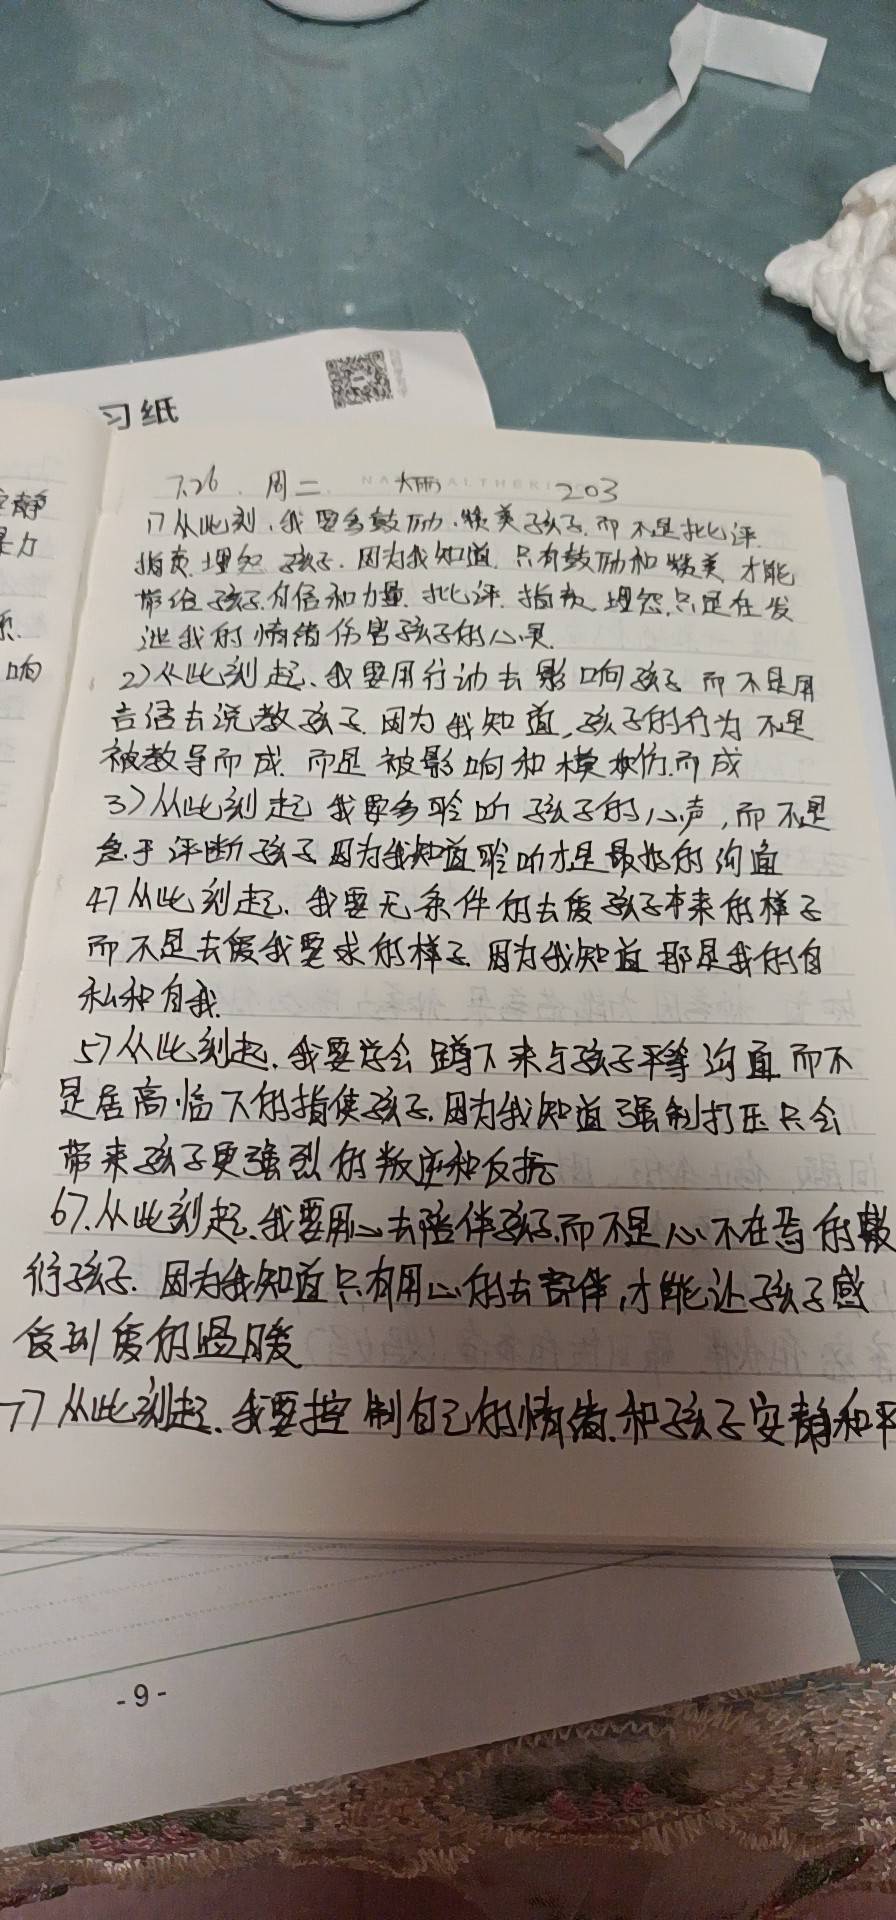 习纸
7.26 周二 大雨 203
1) 从此刻,我要多鼓励、赞美孩子,而不是批评
指责 埋怨 孩子. 因为我知道 只有鼓励和赞美 才能
带给孩子自信和力量. 批评. 指责 埋怨,只是在发
泄我的情绪伤害孩子的心灵.
2) 从此刻起、我要用行动去影响孩子 而不是用
言语去说教孩子. 因为我知道,孩子的行为不是
被教导而成. 而是被影响和模仿而成
3) 从此刻起 我要多聆听孩子的心声,而不是
急于评断孩子 因为我知道聆听才是最好的沟通
4) 从此刻起、我要无条件的去爱孩子本来的样子
而不是去爱我要求的样子. 因为我知道 那是我的自
私和自我.
5) 从此刻起.我要学会蹲下来与孩子平等沟通 而不
是居高临下的指使孩子.因为我知道强制打压只会
带来孩子更强烈的叛逆和反抗
6).从此刻起.我要用心去陪伴孩子.而不是心不在焉的敷
衍孩子. 因为我知道只有用心的去陪伴,才能让孩子感
受到爱的温暖
7) 从此刻起.我要控制自己的情绪.和孩子安静和平
静
力
响
-9-